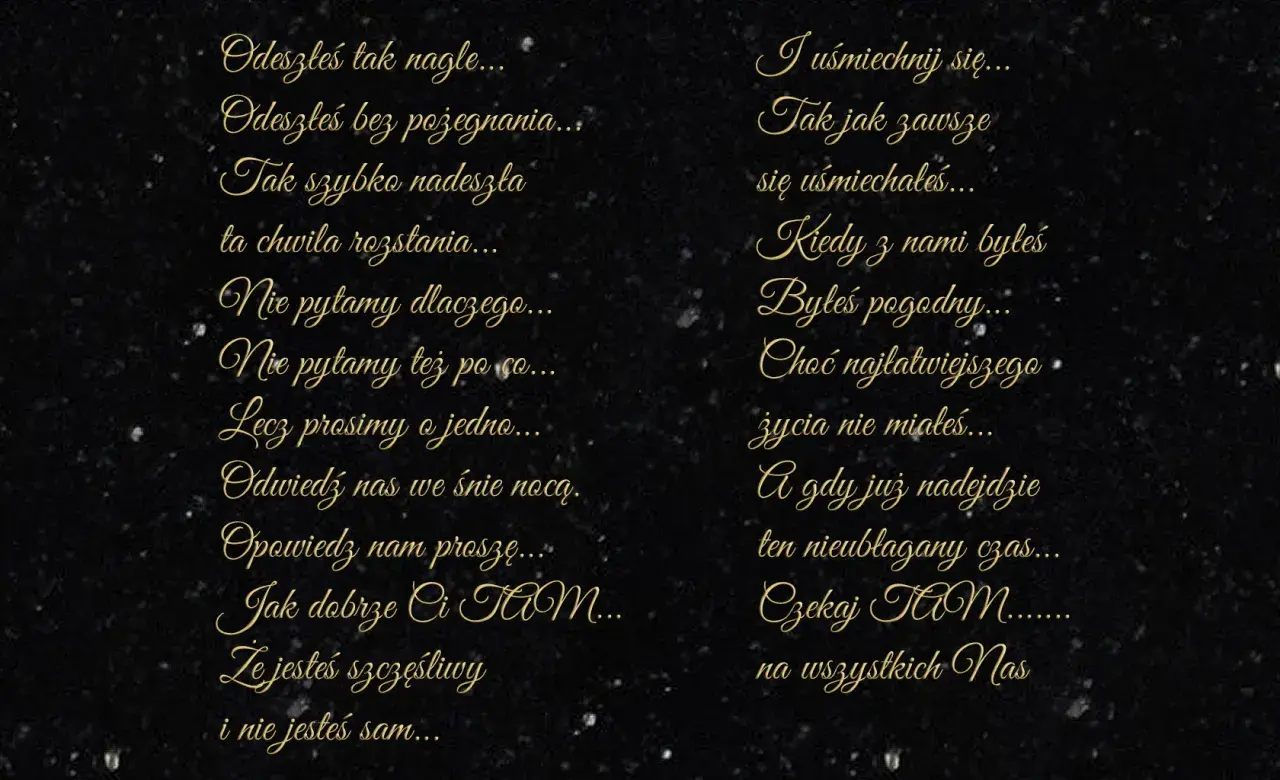 Odeszłeś tak nagle...
Odeszłeś bez pożegnania...
Tak szybko nadeszła
ta chwila rozstania...
Nie pytamy dlaczego...
Nie pytamy też po co...
Lęcz prosimy o jedno...
Odwiedź nas we śnie nocą.
Opowiedz nam proszę...
Jak dobrze Ci TAM...
Że jesteś szczęśliwy
i nie jesteś sam...
I uśmiechnij się...
Tak jak zawsze
się uśmiechałeś...
Kiedy z nami byłeś
Byłeś pogodny...
Choć najłatwiejszego
życia nie miałeś...
A gdy już nadejdzie
ten nieubłagany czas...
Czekaj TAM.......
na wszystkich Nas